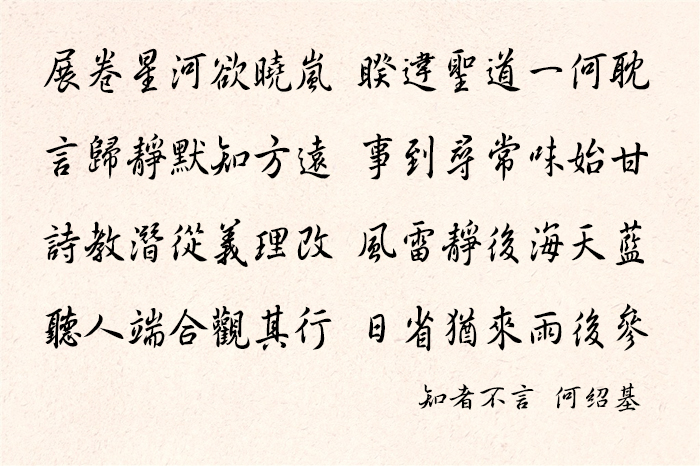 展卷星河欲曉嵐 睽違聖道一何耽
言歸靜默知方遠 事到尋常味始甘
詩教潛從義理改 風雷靜後海天藍
聽人端合觀其行 日省猶來雨後參
知者不言 何绍基